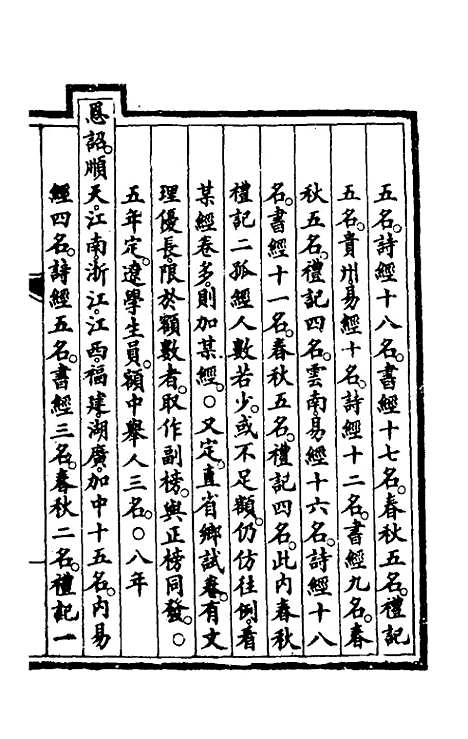 五名。詩經十八名。書經十七名。春秋五名。禮記
五名。貴州。易經十名。詩經十二名。書經九名。春
秋五名。禮記四名。雲南。易經十六名。詩經十八
名。書經十一名。春秋五名。禮記四名。此內春秋
禮記二孤經。人數若少。或不足額。仍仿往例。看
某經卷多。則加某經。○又定。直省鄉試卷。有文
理優長。限於額數者。取作副榜。與正榜同發。○
五年定。遼學生員。額中舉人三名。○八年
恩詔。順天。江南。浙江。江西。福建。湖廣。加中十五名。內易
經四名。詩經五名。書經三名。春秋二名。禮記一